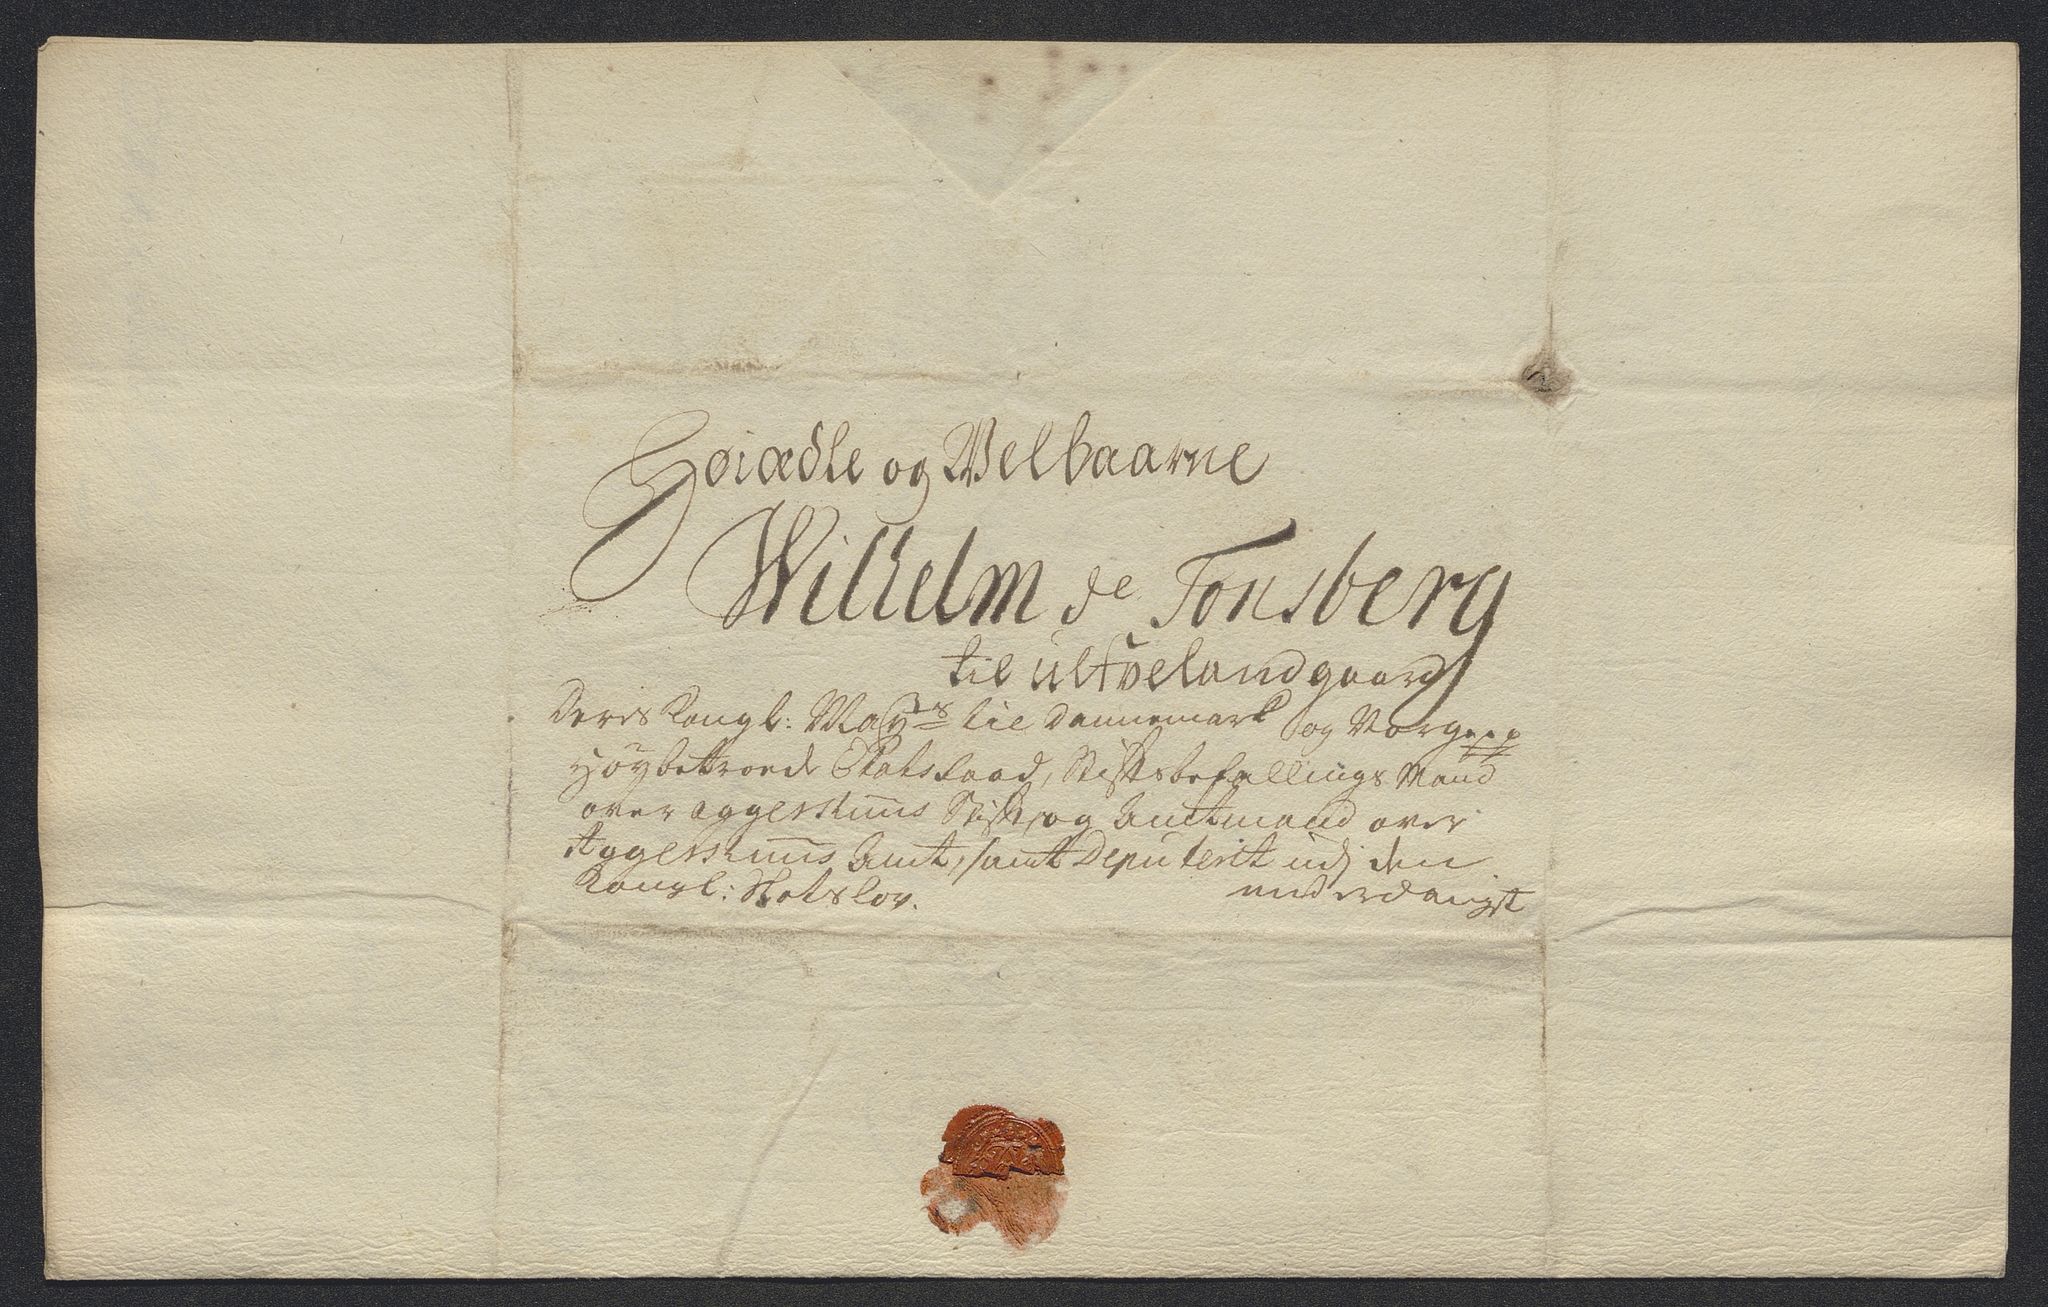 Høiædle og Welbaarne
Wilhelm de Tonsberg
til ulfvelandgaard
Deris Kongl: Mayts til Dannemark og Norge
Høybetroede Etatsraad, Stiftsbefallings Mand
over Aggershuus Stift, og Amtmand over
Aggershuus Amt, samt Deputerit udj den
Kongl: Slotslov. underdanigst